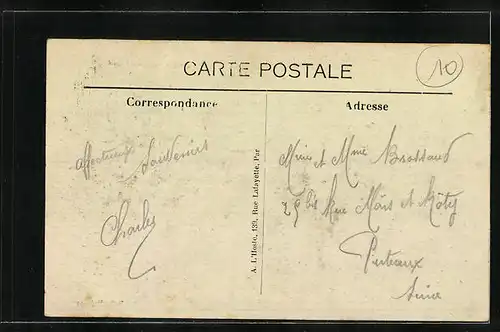 CARTE POSTALE
10
Correspondance
Adresse
affectueux
Souvenirs
Charles
A. L'Hoste, 139, Rue Lafayette, Par
et Mme Brossaud
29 bis Rue Mars et Roty
Puteaux
Seine